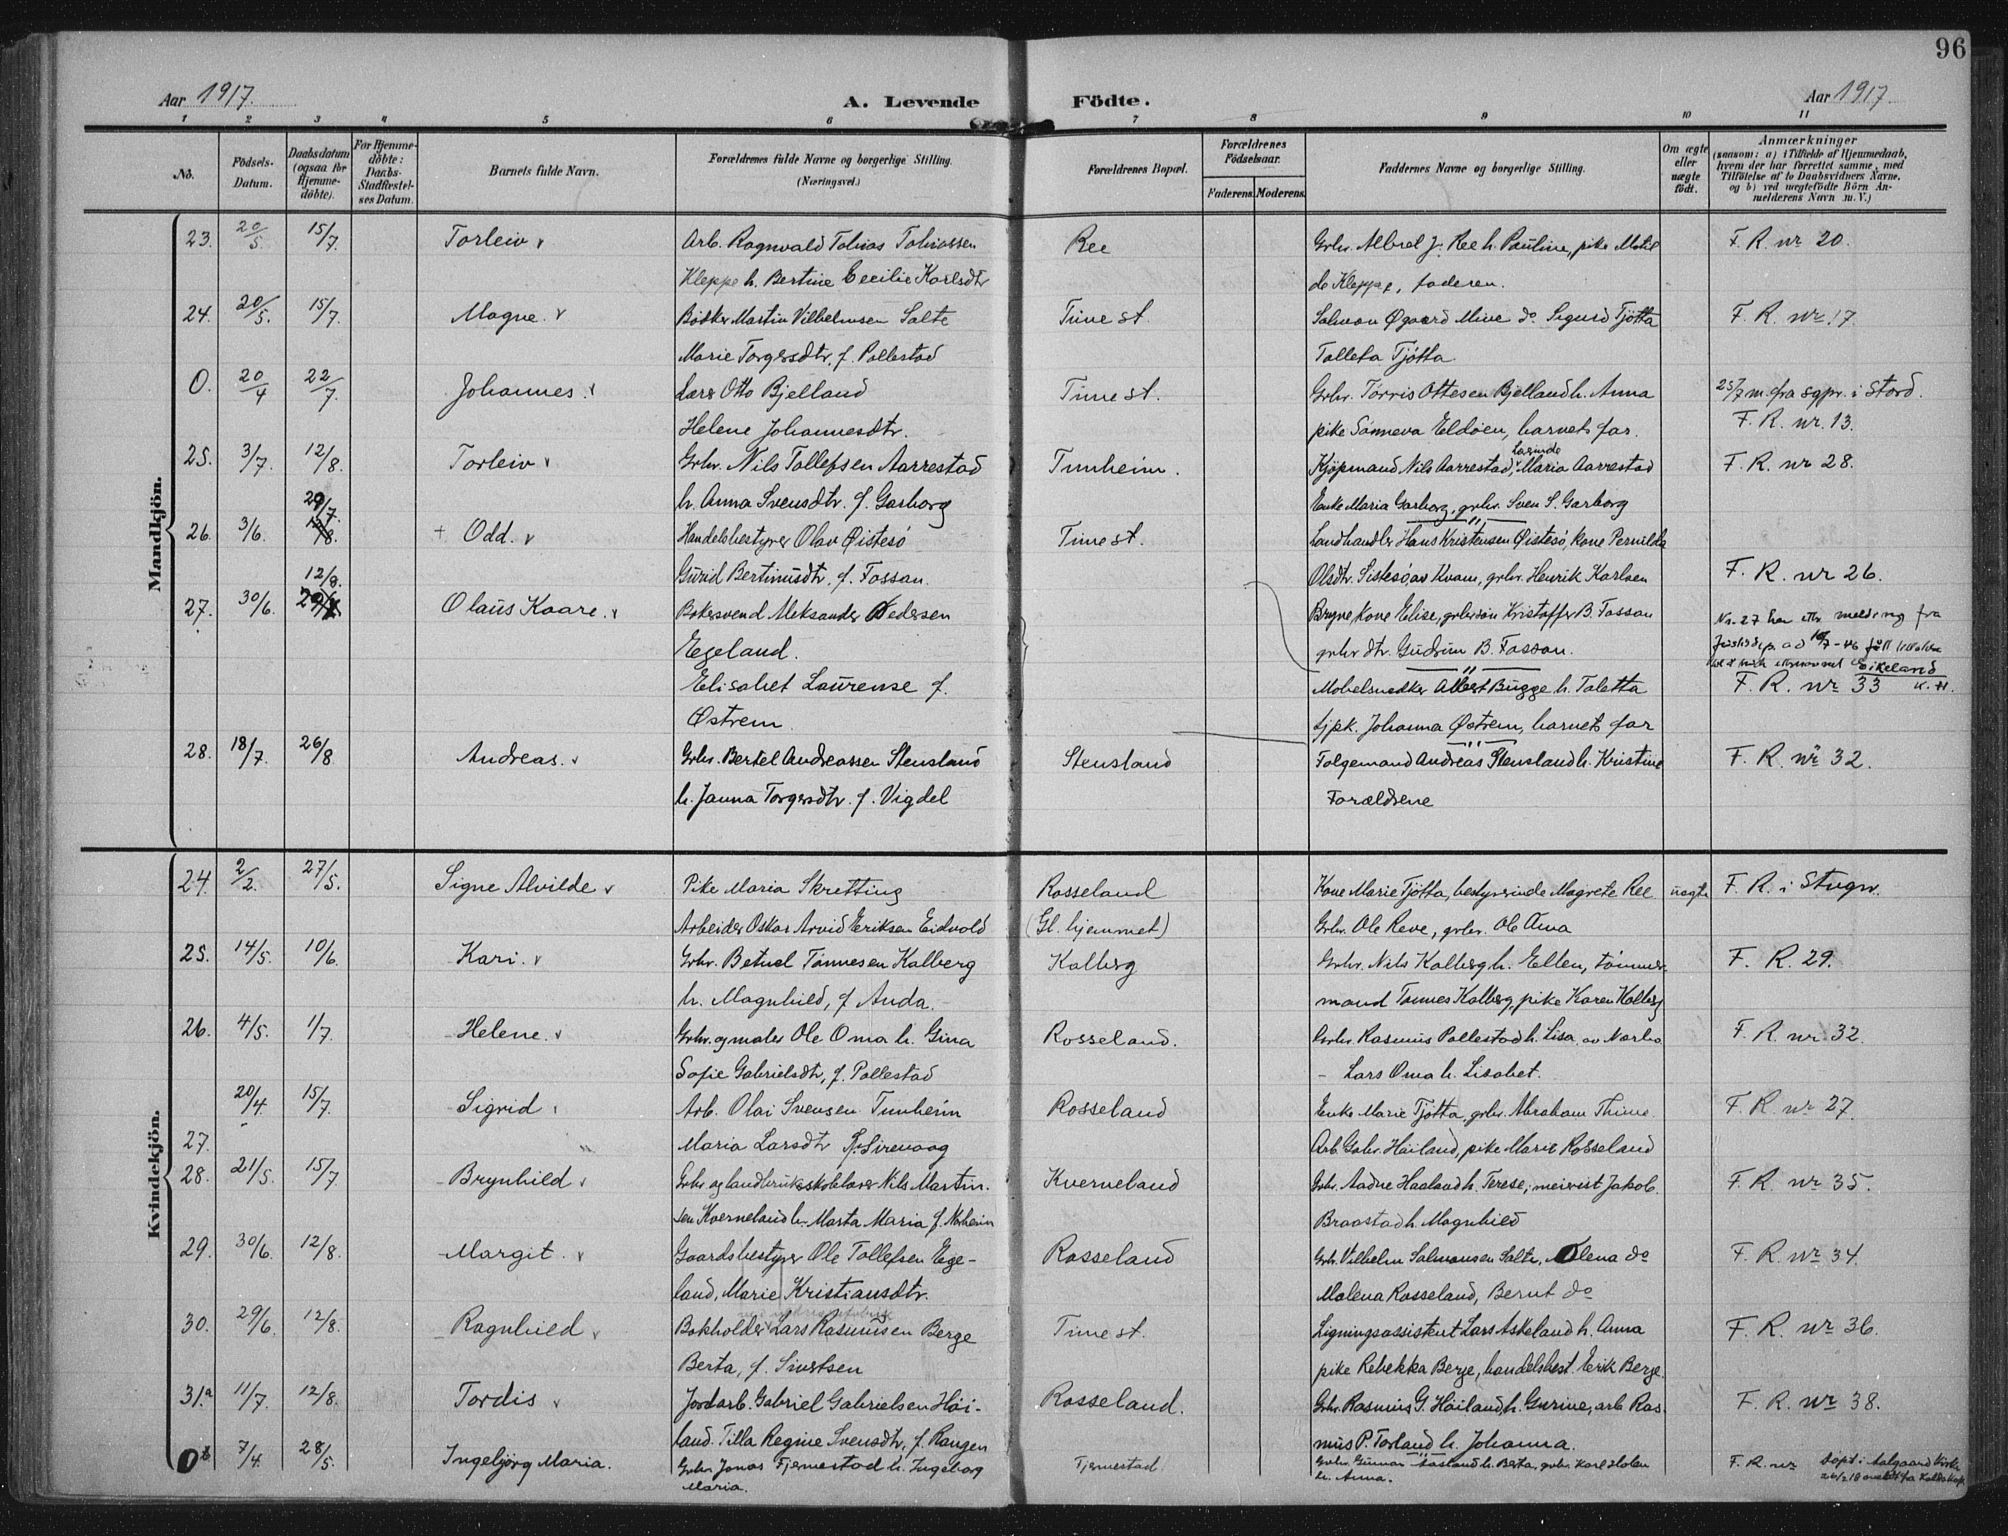 96
Aar 1917. A. Levende Födte. Aar 1917
1 2 3 4 5 6 7 8 9 10 11
No. Födsels-Datum. Daabsdatum (ogsaa for Hjemmedöbte). For Hjemmedöbte: Daabs-Stadfæstelses Datum. Barnets fulde Navn. Forældrenes fulde Navne og borgerlige Stilling. (Næringsvei.) Forældrenes Bopæl. Forældrenes Födselsaar. Faderens. Moderens. Faddernes Navne og borgerlige Stilling. Om ægte eller uægte födt. Anmærkninger (saasom: a) i Tilfælde af Hjemmedaab, hvem der har forrettet samme, med Tilföielse af to Daabsvidners Navne, og b) ved uægtefödte Börn Anmelderens Navn m. V.)
Mandkjön.
23. 20/5 15/7. Torleiv Arb. Ragnvald Tobias Tobiassen Ree Grbr. Albret J. Ree h. Pauline, pike Matil F. R. nr 20.
Kleppe h. Bertine Cecilie Karlsdtr de Kleppe, faderen.
24. 20/5. 15/7. Magne. Bødker Martin Vilhelmsen Salte Time st. Salmon Øgaard Mine do Sigurd Tjøtta F. R. nr 17.
Marie Torgersdtr. f. Pollestad Talleta Tjøtta
0. 20/4 22/7. Johannes. Lars Otto Bjelland Time st. Grbr. Tørris Ottesen Bjelland h. Anna 25/7 m. fra sgpr. i Stord.
Helene Johannesdtr. pike Sønneva Eldøen, barnets far. F. R. nr. 13.
25. 3/7. 12/8. Torleiv Grbr. Nils Tollefsen Aarrestad Tunheim. Kjøpmand Nils Aarrestad, Maria Aarrestad F. R. nr 28.
h. Anna Svensdtr. f. Garborg Enke Maria Garborg, grbr. Sven S. Garborg
26. 3/6. 29/7. + Odd. Handelsbestyrer Olav Øistesø Time st. Landhandler Hans Kristensen Øistesø, kone Pernilda
Gurid Bertinusdtr. f. Fossan. Olsdtr. Sistesø av Kvam, grbr. Henrik Karlsen F. R. nr 26.
27. 30/6. 12/8. Olaus Kaare. Bakersvend Aleksander Pedersen Bryne, kone Elise, grbrsøn Kristoffer B. Fossan Nr. 27 har efter melding fra
Egeland. grbr dtr. Gudrun B. Fossan. Eikeland
Elisabet Laurense f. Møbelsnedker Albert Bugge h. Taletta F. R. nr 33 K. H.
Østrem. tjpk. Johanna Østrem, barnets far
28. 18/7. 26/8 Andreas. Grbr. Bertel Andreassen Stensland Stensland Folgemand Andreas Stensland h. Kristine F. R. nr 32.
h. Janna Torgersdtr. f. Vigdel Forældrene
Kvindekjön.
24. 2/2. 27/5. Signe Alvilde Pike Maria Skretting Rosseland Kone Marie Tjøtta, bestyrerinde Magrete Ree uægte F. R. i Stvgr.
Arbeider Oskar Arvid Eriksen Eidvold (Gl. hjemmet) Grbr. Ole Reve, grbr. Ole Ama
25. 14/5. 10/6. Kari. Grbr. Betuel Tønnesen Kalberg Kalberg Grbr. Nils Kalberg h. Ellen, tømmer- F. R. 29.
h. Magnhild, f. Anda. mand Tønnes Kalberg, pike Karen Kalberg
26. 4/5. 1/7. Helene. Grbr. og maler Ole Oma h. Gina Rosseland. Grbr. Rasmus Pollestad h. Lisa av Nærbø F. R. nr 32.
Sofie Gabrielsdtr, f. Pollestad – Lars Oma h. Lisabet.
20/4. 15/7. Sigrid Arb. Olai Svensen Tunheim Rosseland Enke Marie Tjøtta, grbr. Abraham Thime. F. R. nr 27.
27. Maria Larsdtr f. Sirevaag Arb. Gabr. Høiland, pike Marie Rosseland
28. 21/5. 15/7. Brynhild Grbr. og landbruksskolelærer Nils Martin- Kverneland Grbr. Aadne Haaland h. Terese, meierist Jakob F. R. nr 35.
sen Kverneland h. Marta Maria f. Norheim Braastad h. Magnhild
29. 30/6. 12/8. Margit. Gaardsbestyrer Ole Tollefsen Ege- Rosseland Grbr. Vilhelm Salmonsen Salte, Olena do F. R. nr 34.
land, Marie Kristiansdtr. Malena Rosseland, Bernt do
30. 29/6. 12/8. Ragnhild Bokholder Lars Rasmusen Berge Time st. Ligningsassistent Lars Askeland h. Anna F. R. nr 36.
Berta, f. Sivertsen pike Rebekka Berge, handelsbest. Erik Berge
31.a 11/7. 12/8. Tordis Jordarb. Gabriel Gabrielsen Høi- Rosseland. Grbr. Rasmus G. Høiland h. Gurine, arb. Ras- F. R. nr 38.
land. Tilla Regine Svensdtr, f. Raugen mus P. Torland h. Johanna.
0 b 7/4. 28/5. Ingebjørg Maria. Grbr Jonas Fjermestad h. Ingeborg Fjermestad. Grbr. Gunnar Aasland h. Berta, grbr. Karl Holen F. R. nr døpt i Aalgaard kirke
Maria. h. Anna.